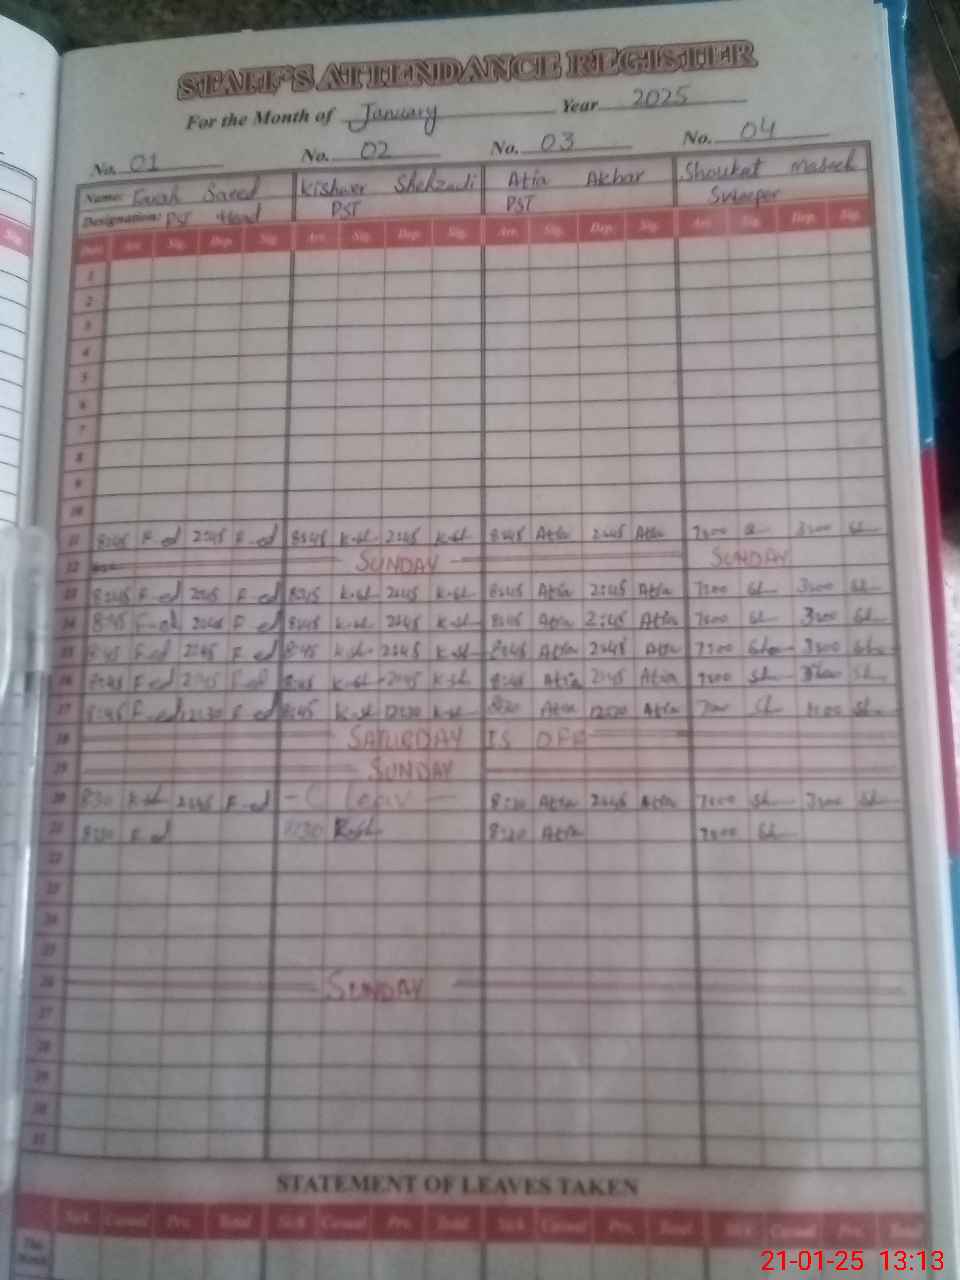 STAFF'S ATTENDANCE REGISTER
For the Month of January Year 2025
No. 01 No. 02 No. 03 No. 04
Name: Saeed Kishwer Shehzadi Atia Akbar Shoukat Maseeh
Designation: PST Head PST PST Sweeper
Date Arr. Sig. Dep. Sig. Arr. Sig. Dep. Sig. Arr. Sig. Dep. Sig. Arr. Sig. Dep. Sig.
1
2
3
4
5
6
7
8
9
10
11 8:45 F-ed 2:45 F-ed 8:45 K-sh 2:45 K-sh 8:45 Atia 2:45 Atia 7:00 3:00 Sh
12 SUNDAY SUNDAY
13 8:45 F-ed 2:45 F-ed 8:45 K-sh 2:45 K-sh 8:45 Atia 2:45 Atia 7:00 Sh 3:00 Sh
14 8:45 F-ed 2:45 F-ed 8:45 K-sh 2:45 K-sh 8:45 Atia 2:45 Atia 7:00 Sh 3:00 Sh
15 8:45 F-ed 2:45 F-ed 8:45 K-sh 2:45 K-sh 8:45 Atia 2:45 Atia 7:00 3:00
16 8:45 F-ed 2:45 F-ed 8:45 K-sh 2:45 K-sh 8:45 Atia 2:45 Atia 7:00 Sh 3:00 Sh
17 8:45 F-ed 12:30 F-ed 8:45 K-sh 12:30 K-sh 8:30 Atia 12:30 Atia 7:00 Sh Sh
18 SATURDAY IS OFF
19 SUNDAY
20 8:30 2:45 F-ed - C Leav - 8:30 Atia 2:45 Atia 7:00 Sh 3:00 Sh
21 8:30 F-ed 8:30 K-sh 8:30 Atia 7:00 Sh
22
23
24
25
26 SUNDAY
27
28
29
30
31
STATEMENT OF LEAVES TAKEN
Sick Casual Prv. Total Sick Casual Prv. Total Sick Casual Prv. Total Sick Casual Prv. Total
This Month
21-01-25 13:13